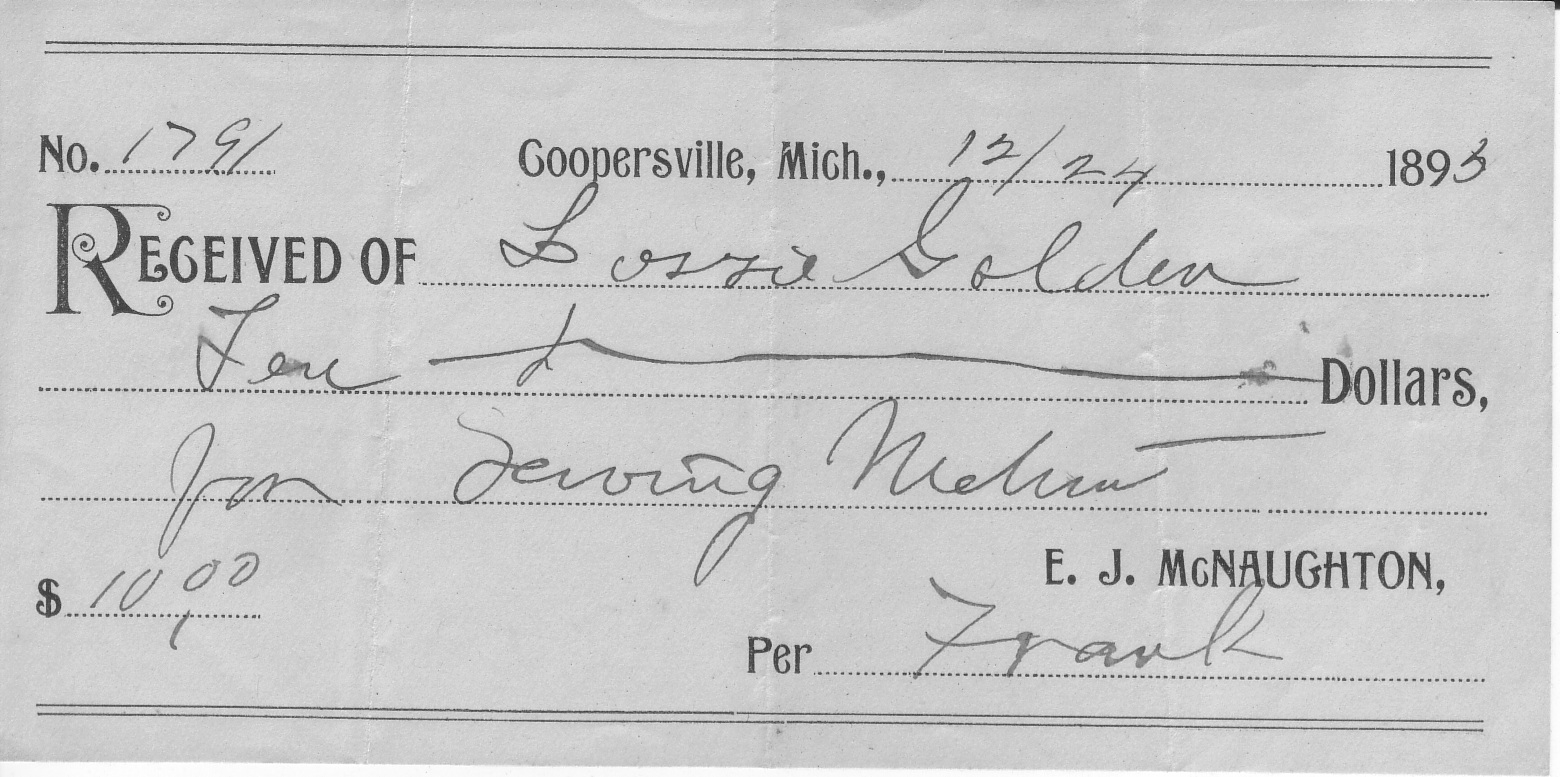 No. 1791 Coopersville, Mich., 12/24 1893
RECEIVED OF Golden
Ten Dollars,
for Sewing
E. J. McNAUGHTON,
$ 10,00
Per Frank